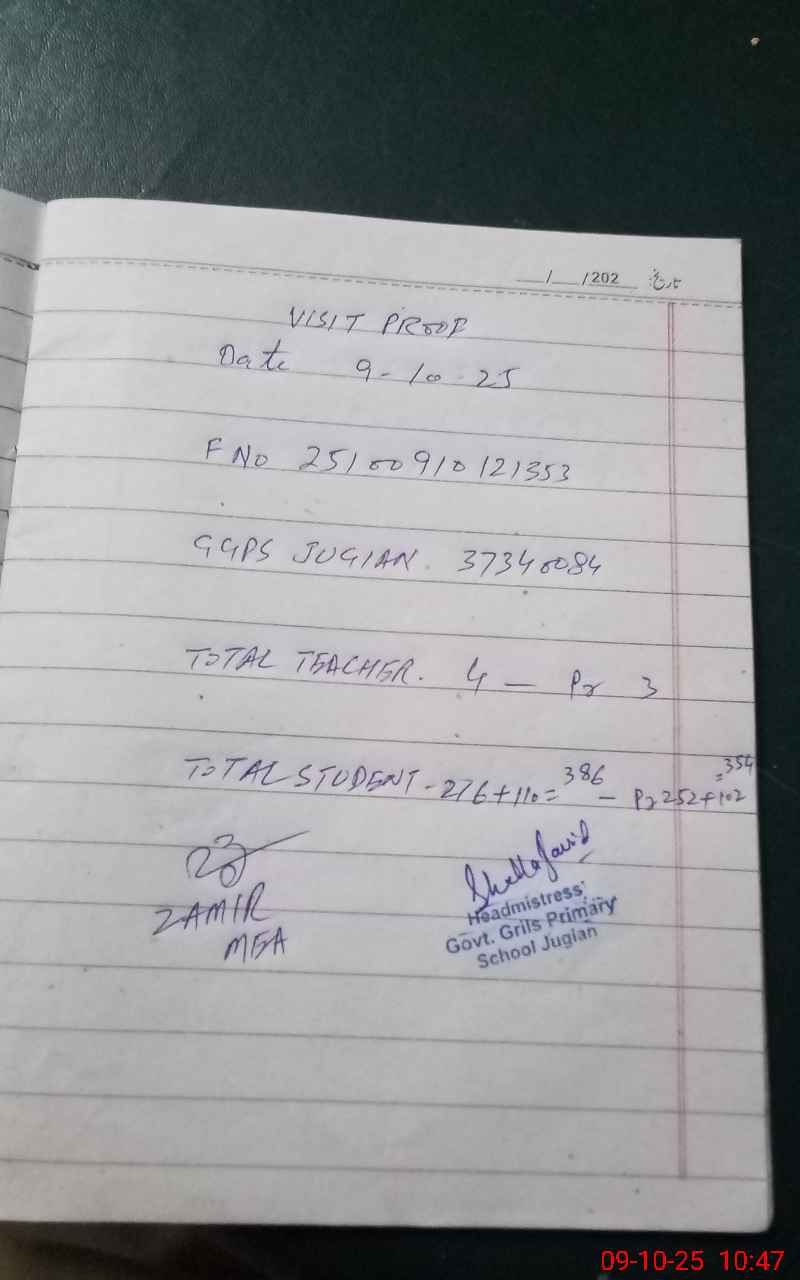 __/__/202 تاریخ
VISIT PROOF
Date 9-10-25
F No 25100910121353
GGPS JUGIAN. 37340084
TOTAL TEACHER. 4 — Pr 3
TOTAL STUDENT - 276+110=386 — Pr 252+102=354
ZAMIR
MEA
Headmistress:
Govt. Grils Primary
School Jugian
09-10-25 10:47